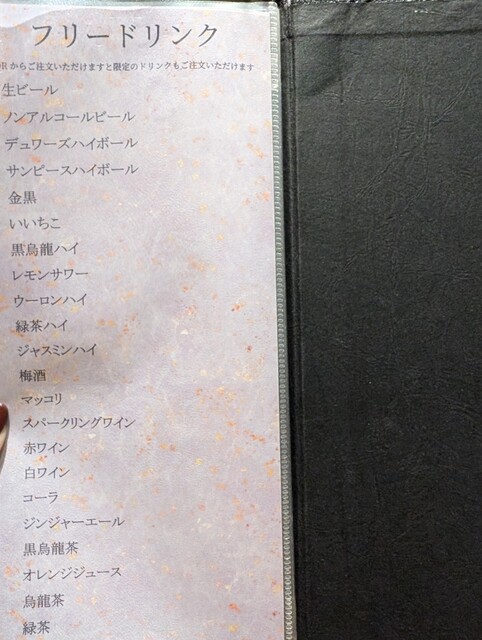 フリードリンク
Rからご注文いただけますと限定のドリンクもご注文いただけます
生ビール
ノンアルコールビール
デュワーズハイボール
サンピースハイボール
金黒
いいちこ
黒烏龍ハイ
レモンサワー
ウーロンハイ
緑茶ハイ
ジャスミンハイ
梅酒
マッコリ
スパークリングワイン
赤ワイン
白ワイン
コーラ
ジンジャーエール
黒烏龍茶
オレンジジュース
烏龍茶
緑茶